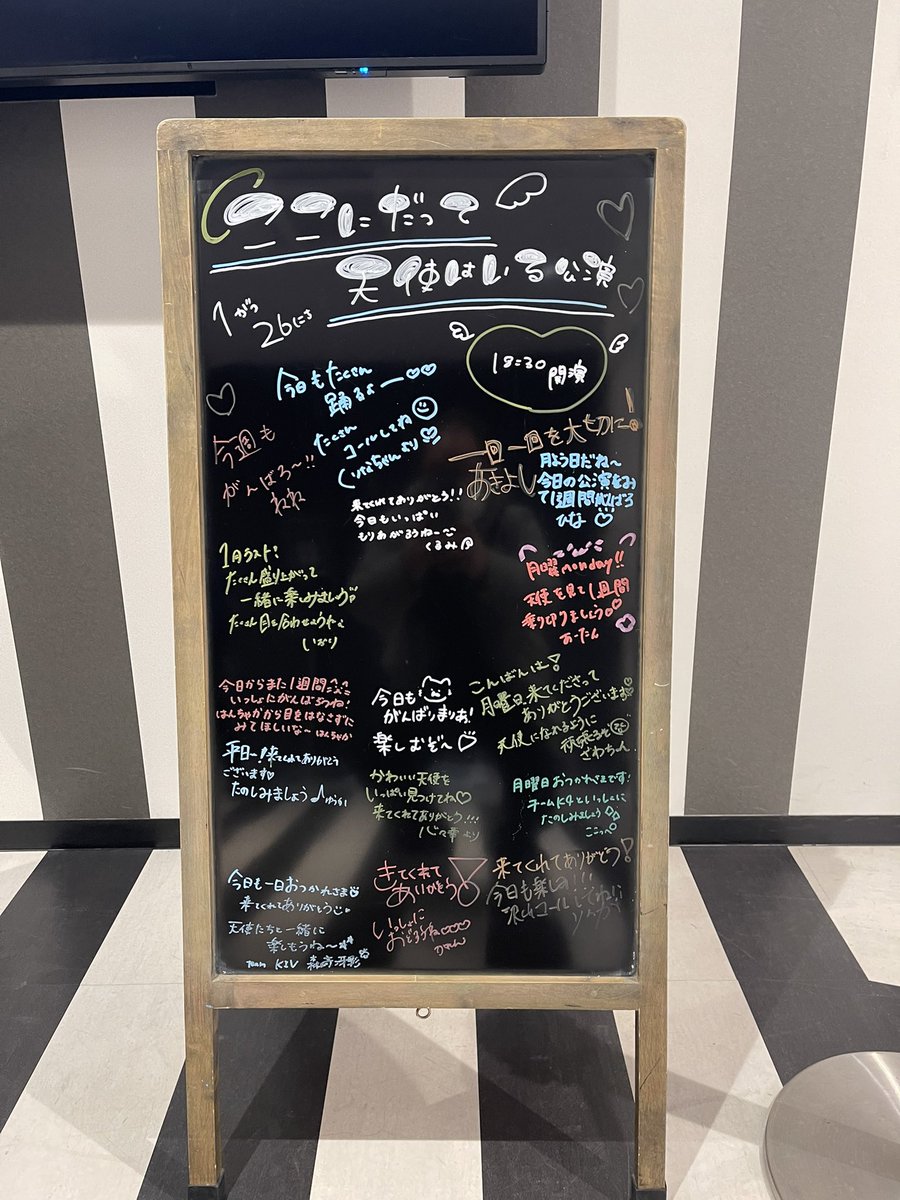 ココにだって
天使はいる公演
1がつ
26にち
18:30
開演
今日もたくさん
踊るよー♡♡
たくさん
コールしてね
今週も
がんばろ〜!!
ねね
一回一回を大切に!
あきよし
月よう日だね〜
今日の公演をみ
て1週間がんばろ
ひな♡
来てくれてありがとう!!
今日もいっぱい
もりあがろうねー
くるみ
1月ラスト!
たくさん盛り上がって
一緒に楽しみましょう
たくさん目を合わせようね
いおり
月曜monday!!
天使を見て1週間
乗り切りましょう
あーたん
今日からまた1週間
いっしょにがんばろうね!
はんちゃかから目をはなさずに
みてほしいな〜 はんちゃか
今日も
がんばりまりあ!
楽しむぞ〜♡
こんばんは!
月曜日、来てくださって
ありがとうございます
天使になれるように
頑張るぞ
さわちゃん
平日ー!来てくれてありがとう
ございます♡
たのしみましょう♪
かわいい天使を
いっぱい見つけてね♡
来てくれてありがとう!!!
心々華より
月曜日おつかれさまです!
チームK4といっしょに
たのしみましょう
今日も一日おつかれさま
来てくれてありがとう
天使たちと一緒に
楽しもうね〜
Team KIV
きてくれて
ありがとう!
いっしょに
おどろうね♡♡♡
来てくれてありがとう!
今日も楽しも!!!
沢山コールしてね